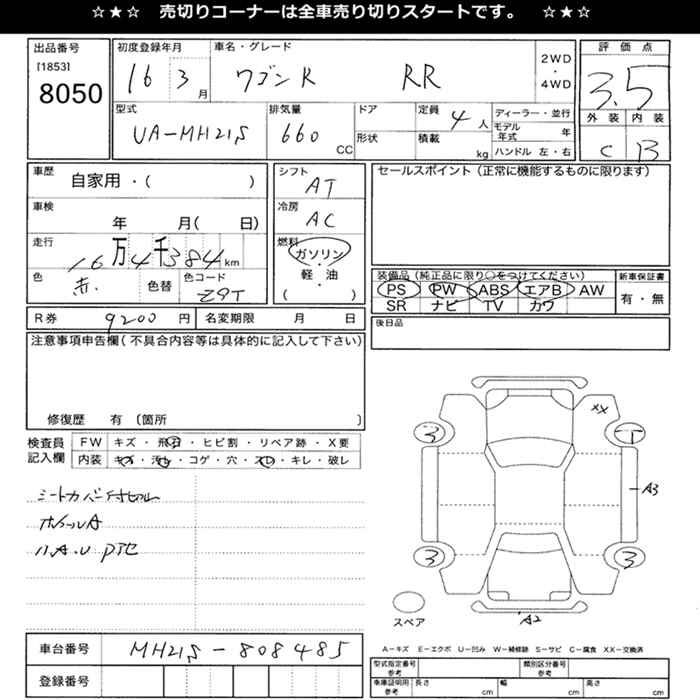 ☆★☆ 売切りコーナーは全車売り切りスタートです。 ☆★☆
出品番号
[1853]
8050
初度登録年月
16 3
月
車名・グレード
ワゴンR RR
2WD
・
4WD
評価点
3.5
外装 内装
C B
型式
UA-MH21S
排気量
660
CC
ドア
形状
定員
4 人
積載
kg
ディーラー・並行
モデル年式 年
ハンドル 左・右
車歴
自家用・( )
車検
年 月( 日)
走行
16万4千384km
色
赤.
色替
色コード
Z9T
シフト
AT
冷房
AC
燃料
ガソリン・
軽・油
( )
セールスポイント(正常に機能するものに限ります)
装備品(純正品に限り○をつけてください)
PS PW ABS エアB AW
SR ナビ TV カワ
新車保証書
有・無
R券 9200 円
名変期限 月 日
後日品
注意事項申告欄(不具合内容等は具体的に記入して下さい)
修復歴 有 〔箇所 〕
検査員
記入欄
FW キズ・飛石・ヒビ割・リペア跡・X要
内装 キズ・汚れ・コゲ・穴・スレ・キレ・破レ
シートカバー付
A
H.A.U
XX
3
T
A3
3
3
スペア
A2
A-キズ E-エクボ U-凹み W-補修跡 S-サビ C-腐食 XX-交換済
車台番号 MH21S-808485
登録番号
型式指定番号
参考
類別区分番号
参考
車庫証明用
参考
長さ cm
幅 cm
高さ cm